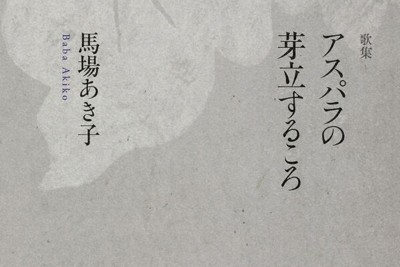 歌集
アスパラの
芽立するころ
馬場あき子
Baba Akiko